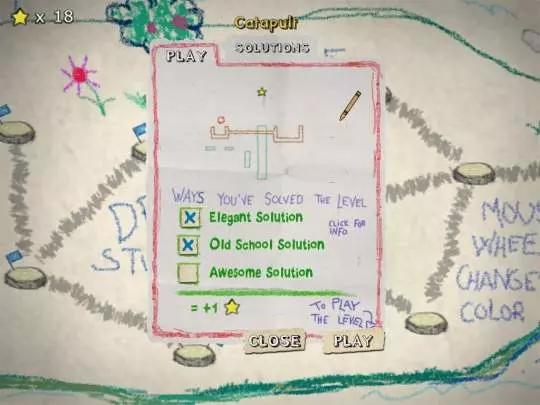 x 18
Catapult
PLAY
SOLUTIONS
WAYS YOU'VE SOLVED THE LEVEL
Elegant Solution
CLICK FOR
INFO
Old School Solution
Awesome Solution
= +1
TO PLAY
THE LEVEL
CLOSE
PLAY
MOUS
WHEE
CHANGE
COLOR